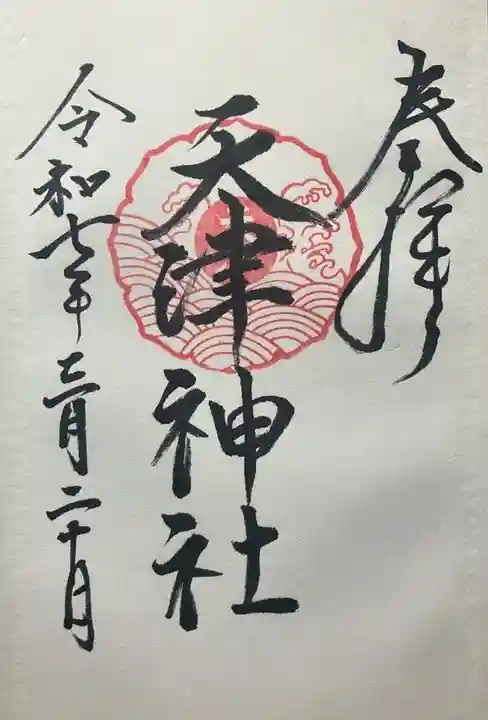 奉拝
天津神社
令和七年三月二十月